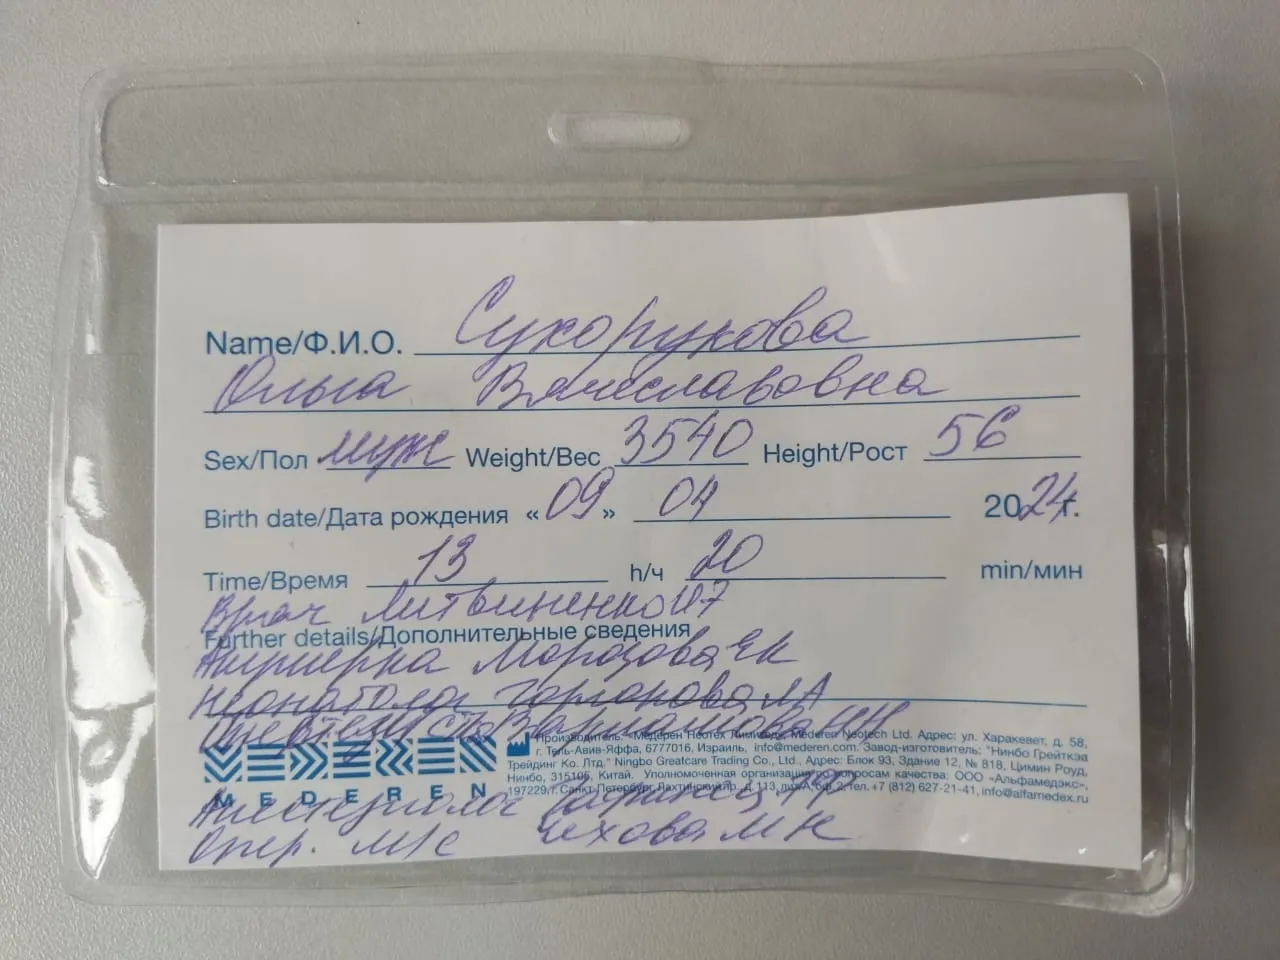 Name/Ф.И.О. Сухорукова
Ольга Вячеславовна
Sex/Пол муж Weight/Вес 3540 Height/Рост 56
Birth date/Дата рождения «09» 04 2024г.
Time/Время 13 h/ч 20 min/мин
Врач Литвиненко
Further details/Дополнительные сведения
Акушерка Морозова ЯК
Неонатолог ЛА
НН
Производитель: "Медерен Неотех Лимитед", Mederen Neotech Ltd. Адрес: ул. Харакевет, д. 58,
г. Тель-Авив-Яффа, 6777016, Израиль, info@mederen.com. Завод-изготовитель: "Нинбо Грейткэа
Трейдинг Ко. Лтд." Ningbo Greatcare Trading Co., Ltd., Адрес: Блок 93, Здание 12, № 818, Цимин Роуд,
Нинбо, 315105, Китай. Уполномоченная организация по вопросам качества: ООО «Альфамедэкс»,
197229, г. Санкт-Петербург, Лахтинский пр., д. 113, оф. 2, тел. +7 (812) 627-21-41, info@alfamedex.ru
MEDEREN
Анестезиолог
Опер. м/с Чехова МК